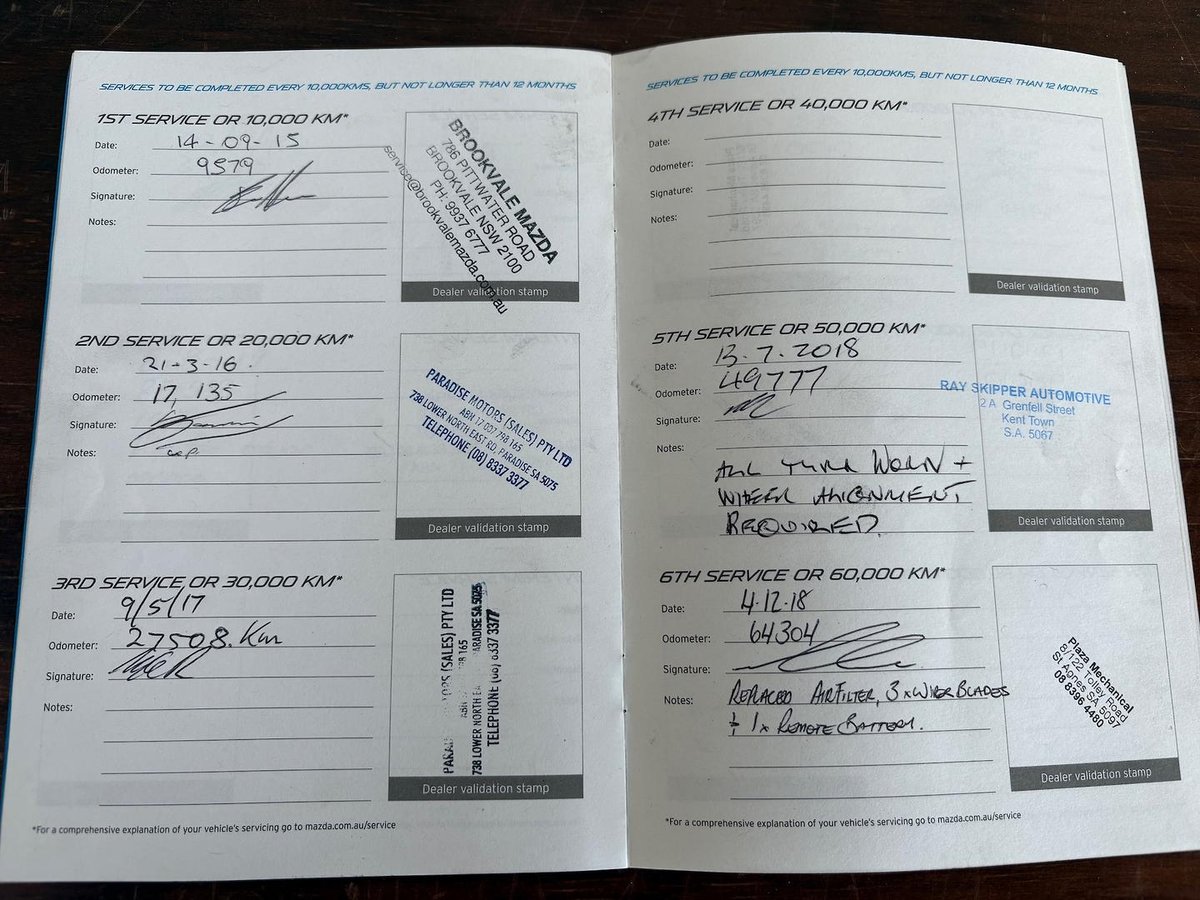 SERVICES TO BE COMPLETED EVERY 10,000KMS, BUT NOT LONGER THAN 12 MONTHS
1ST SERVICE OR 10,000 KM*
Date: 14-09-15
Odometer: 9579
Signature:
Notes:
BROOKVALE MAZDA
786 PITTWATER ROAD
BROOKVALE NSW 2100
PH: 9937 6777
service@brookvalemazda.com.au
Dealer validation stamp
2ND SERVICE OR 20,000 KM*
Date: 21-3-16.
Odometer: 17,135
Signature:
Notes:
PARADISE MOTORS (SALES) PTY LTD
ABN 17 007 798 165
738 LOWER NORTH EAST RD, PARADISE SA 5075
TELEPHONE (08) 8337 3377
Dealer validation stamp
3RD SERVICE OR 30,000 KM*
Date: 9/5/17
Odometer: 27508.Km
Signature:
Notes:
(SALES) PTY LTD
165
738 LOWER NORTH PARADISE SA 5075
TELEPHONE (08) 8337 3377
Dealer validation stamp
*For a comprehensive explanation of your vehicle's servicing go to mazda.com.au/service
SERVICES TO BE COMPLETED EVERY 10,000KMS, BUT NOT LONGER THAN 12 MONTHS
4TH SERVICE OR 40,000 KM*
Date:
Odometer:
Signature:
Notes:
Dealer validation stamp
5TH SERVICE OR 50,000 KM*
Date: 13.7.2018
Odometer: 49777
Signature:
Notes:
ALL TYRE WORN +
WHEEL ALIGNMENT
REQUIRED.
RAY SKIPPER AUTOMOTIVE
2 A Grenfell Street
Kent Town
S.A. 5067
Dealer validation stamp
6TH SERVICE OR 60,000 KM*
Date: 4.12.18
Odometer: 64304
Signature:
Notes: REPLACED AIRFILTER, 3 x WIPER BLADES
+ 1x REMOTE BATTERY.
Plaza Mechanical
8/122 Tolley Road
St. Agnes SA 5097
08 8396 4480
Dealer validation stamp
*For a comprehensive explanation of your vehicle's servicing go to mazda.com.au/service